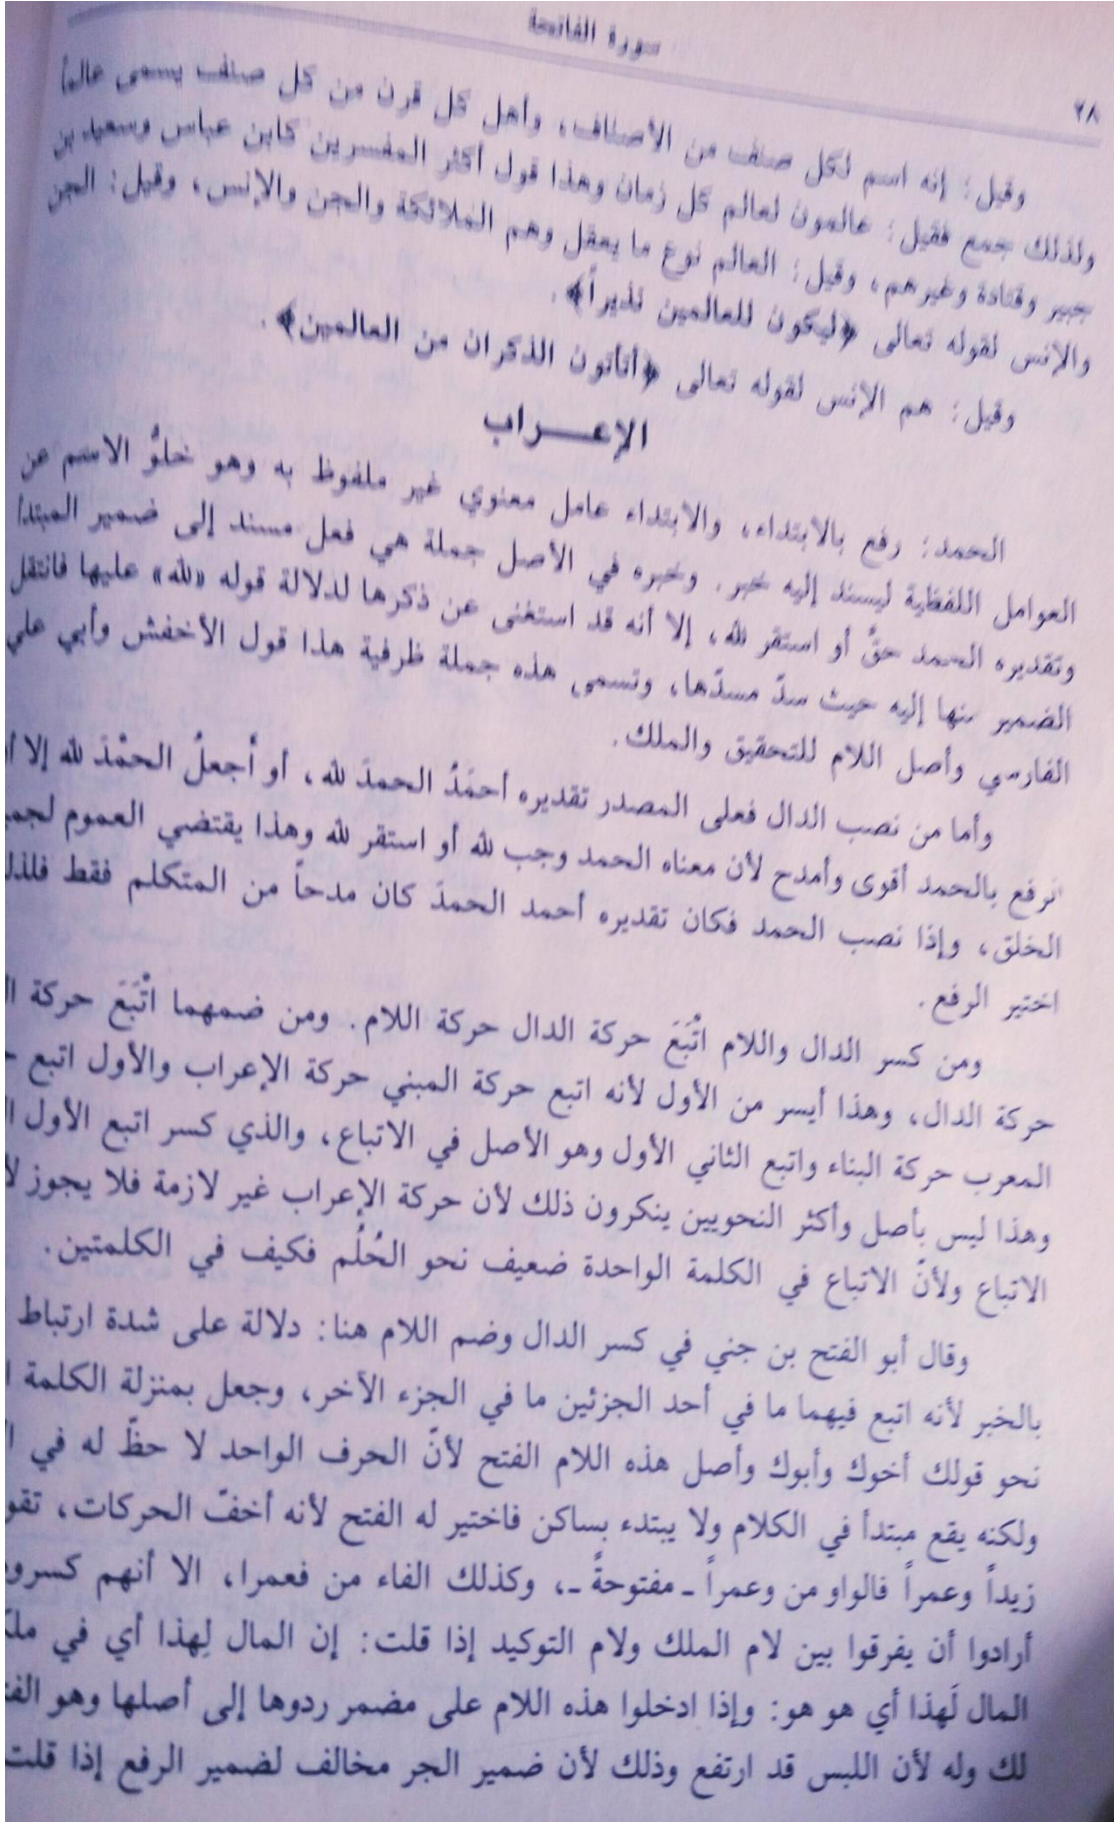 سورة الفاتحة
٢٨
وقيل: إنه اسم لكل صنف من الأصناف، وأهل كل قرن من كل صنف يسمى عالماً
ولذلك جمع فقيل: عالمون لعالم كل زمان وهذا قول أكثر المفسرين كابن عباس وسعيد بن
جبير وقتادة وغيرهم، وقيل: العالم نوع ما يعقل وهم الملائكة والجن والإنس، وقيل: الجن
والإنس لقوله تعالى ﴿ليكون للعالمين نذيراً﴾.
وقيل: هم الإنس لقوله تعالى ﴿أتأتون الذكران من العالمين﴾.
الإعــراب
الحمد: رفع بالابتداء، والابتداء عامل معنوي غير ملفوظ به وهو خلوُّ الاسم عن
العوامل اللفظية ليسند إليه خبر. وخبره في الأصل جملة هي فعل مسند إلى ضمير المبتدأ
وتقديره الحمد حقَّ أو استقر لله، إلا أنه قد استغنى عن ذكرها لدلالة قوله «لله» عليها فانتقل
الضمير منها إليه حيث سدّ مسدّها، وتسمى هذه جملة ظرفية هذا قول الأخفش وأبي علي
الفارسي وأصل اللام للتحقيق والملك.
وأما من نصب الدال فعلى المصدر تقديره أحمَدُ الحمدَ لله، أو أجعلُ الحمْدَ لله إلا
الرفع بالحمد أقوى وأمدح لأن معناه الحمد وجب لله أو استقر لله وهذا يقتضي العموم
الخلق، وإذا نصب الحمد فكان تقديره أحمد الحمدَ كان مدحاً من المتكلم فقط
اختير الرفع.
ومن كسر الدال واللام اتْبَعَ حركة الدال حركة اللام. ومن ضمهما اتْبَعَ حركة
حركة الدال، وهذا أيسر من الأول لأنه اتبع حركة المبني حركة الإعراب والأول اتبع
المعرب حركة البناء واتبع الثاني الأول وهو الأصل في الاتباع، والذي كسر اتبع الأول
وهذا ليس بأصل وأكثر النحويين ينكرون ذلك لأن حركة الإعراب غير لازمة فلا يجوز
الاتباع ولأنّ الاتباع في الكلمة الواحدة ضعيف نحو الحُلُم فكيف في الكلمتين.
وقال أبو الفتح بن جني في كسر الدال وضم اللام هنا: دلالة على شدة ارتباط
بالخبر لأنه اتبع فيهما ما في أحد الجزئين ما في الجزء الآخر، وجعل بمنزلة الكلمة
نحو قولك أخوك وأبوك وأصل هذه اللام الفتح لأنّ الحرف الواحد لا حظّ له في
ولكنه يقع مبتدأ في الكلام ولا يبتدء بساكن فاختير له الفتح لأنه أخفّ الحركات،
زيداً وعمراً فالواو من وعمراً ـ مفتوحةً ـ، وكذلك الفاء من فعمرا، الا أنهم
أرادوا أن يفرقوا بين لام الملك ولام التوكيد إذا قلت: إن المال لِهذا أي في
المال لَهذا أي هو هو: وإذا ادخلوا هذه اللام على مضمر ردوها إلى أصلها وهو
لك وله لأن اللبس قد ارتفع وذلك لأن ضمير الجر مخالف لضمير الرفع إذا قلت